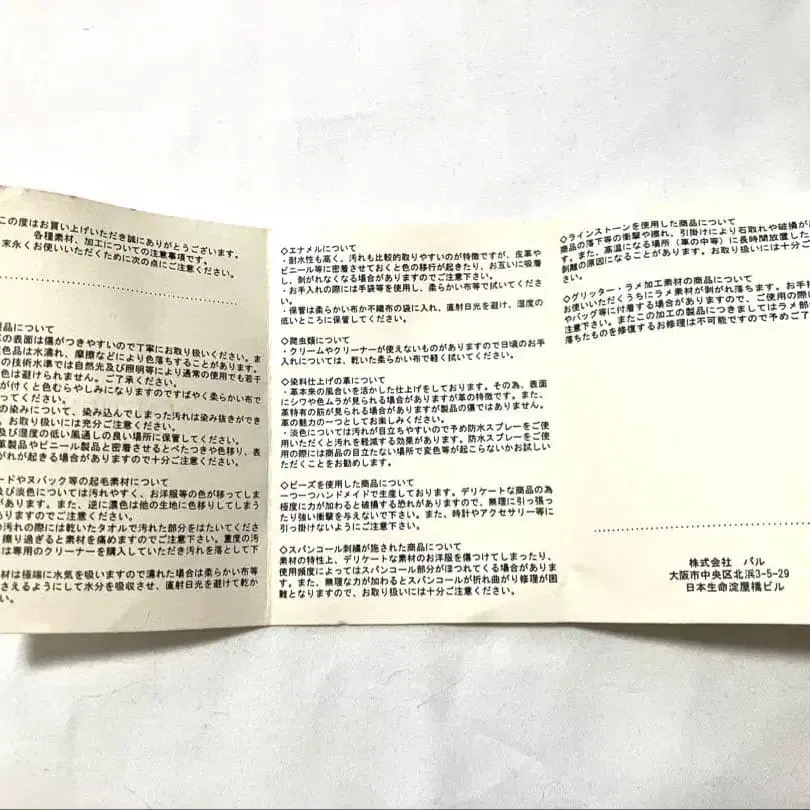 この度はお買い上げいただき誠にありがとうございます。
各種素材、加工についての注意事項です。
末永くお使いいただくために次の点にご注意ください。
製品について
の表面は傷がつきやすいので丁寧にお取り扱いください。ま
色品は水濡れ、摩擦などにより色落ちすることがあります。
の技術水準では自然光及び照明等により通常の使用でも若干
色は避けられません。ご了承ください。
が付くと色むらやしみになりますのですばやく柔らかい布で
ください。
の染みについて、染み込んでしまった汚れは染み抜きができ
。お取り扱いには充分ご注意ください。
及び湿度の低い風通しの良い場所に保管してください。
革製品やビニール製品と密着させるとべたつきや色移り、表
がれが起きる場合がありますので十分ご注意ください。
ードやヌバック等の起毛素材について
及び淡色については汚れやすく、お洋服等の色が移ってしま
があります。また、逆に濃色は他の生地に色移りしてしまう
ありますのでご注意ください。
の汚れの際には乾いたタオルで汚れた部分をはたいてくださ
擦り過ぎると素材を痛めますのでご注意下さい。重度の汚
は専用のクリーナーを購入していただき汚れを落として下
材は極端に水気を吸いますので濡れた場合は柔らかい布等
さえるようにして水分を吸収させ、直射日光を避けて乾か
い。
◇エナメルについて
・耐水性も高く、汚れも比較的取りやすいのが特徴ですが、皮革や
ビニール等に密着させておくと色の移行が起きたり、お互いに吸着
し、剥がれなくなる場合がありますのでご注意下さい。
・お手入れの際には手袋等を使用し、柔らかい布等で拭いてくださ
い。
・保管は柔らかい布か不織布の袋に入れ、直射日光を避け、湿度の
低いところに保管してください。
◇爬虫類について
・クリームやクリーナーが使えないものがありますので日頃のお手
入れについては、乾いた柔らかい布で軽く拭いてください。
◇染料仕上げの革について
・革本来の風合いを活かした仕上げをしております。その為、表面
にシワや色ムラが見られる場合がありますが革の特徴です。また、
革特有の筋が見られる場合がありますが製品の傷ではありません。
革の魅力の一つとしてお楽しみください。
・淡色については汚れが目立ちやすいので予め防水スプレーをご使
用いただくと汚れを軽減する効果があります。防水スプレーをご使
用の際には商品の目立たない場所で変色等が起こらないかお試しい
ただくことをお勧めします。
◇ビーズを使用した商品について
一つ一つハンドメイドで生産しております。デリケートな商品の為
極度に力が加わると破損する恐れがありますので、無理に引っ張っ
たり強い衝撃を与えないで下さい。また、時計やアクセサリー等に
引っ掛けないようにご注意下さい。
◇スパンコール刺繍が施された商品について
素材の特性上、デリケートな素材のお洋服を傷つけてしまったり、
使用頻度によってはスパンコール部分がほつれてくる場合がありま
す。また、無理な力が加わるとスパンコールが折れ曲がり修理が困
難となりますので、お取り扱いには十分ご注意ください。
◇ラインストーンを使用した商品について
商品の落下等の衝撃や擦れ、引掛けにより石取れや破損が
す。また、高温になる場所（車の中等）に長時間放置した
剥離の原因になることがあります。お取り扱いには十分ご
◇グリッター・ラメ加工素材の商品について
お使いいただくうちにラメ素材が剥がれ落ちます。お手持
やバッグ等に付着する場合がありますので、ご使用の際に
注意下さい。またこの加工の製品につきましてはラメ部
落ちたものを修復するお修理は不可能ですので予めご了
株式会社　パル
大阪市中央区北浜3-5-29
日本生命淀屋橋ビル